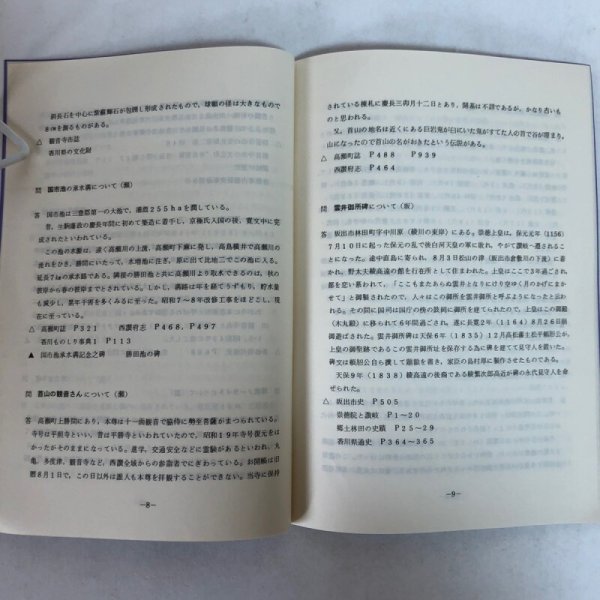 斜長石を中心に紫蘇輝石が包囲し形成されたもので、球顆の径は大きなもので
8㎝を測るものがある。
△ 観音寺市誌
香川県の文化財
問 国市池の承水溝について(瀬)
答 国市池は三豊郡第一の大池で、灌漑255haを潤している。
生駒藩政の慶長年間に初めて築造に着手し、京極氏入国の後、寛文中に完
成されたといわれている。
この池の水源は、遠く高瀬川の上流、高瀬町下麻に発し、高島横井で高瀬川の
流れをひき、勝間にいたって、水増池に注ぎ、原に出て比地二でこの池に入る。
延長7㎞の承水路である。隣接の勝田池と共に高瀬川より取水できるのは、秋の
彼岸から春の彼岸までとされている。しかし、満積は年を経てうずもり、貯水量
も減少し、累年干害を多くみるに至った。昭和7～8年改修工事をほどこし、現
在に至っている。
△ 高瀬町誌 P321 西讃府志 P468、P497
香川ものしり事典 P113
▲ 国市池承水溝記念之碑 勝田池の碑
問 首山の観音さんについて(瀬)
答 高瀬町上勝間にあり、本尊は十一面観音で脇侍に勢至菩薩がまつられている。
寺号は平前寺といい、昔は平勝寺といわれていたので、昭和19年寺号復元をは
かったがそのままになっている。進学、交通安全などに霊験があるといわれ、丸
亀、多度津、観音寺など、西讃全域からの参詣者でにぎわっている。お開帳は旧
暦8月1日で、この日以外は誰人も本尊を拝観することができない。当寺に保持
―8―
されている棟札に慶長三卯月十二日とあり、開基は不詳であるが、かなり古いも
のと思われる。
又、首山の地名は近くにある巨岩鬼が臼にいた鬼がすてた人の首で谷が埋まり、
山になったので首山の名がおきたという伝説がある。
△ 高瀬町誌 P488 P939
西讃府志 P464
問 雲井御所碑について(坂)
答 坂出市林田町字中川原(綾川の東岸)にある。崇徳上皇は、保元元年(1156)
7月10日に起った保元の乱で後白河上皇の軍に敗れ、やがて讃岐へ遷されるこ
とになった。途中直島に寄られ、8月3日松山の津(坂出市倉敷川の下流)に着
き、野太夫綾高遠の館を行在所として住まわれた。上皇はここで3年過ごされ、
都を恋い慕われて、「ここもまたあらぬ雲井となりにけり空ゆく月のかげにまか
せて」と御製されたので、人々はこの御所を雲井御所と呼ぶようになったと云わ
れる。その間に国司は国府庁の傍の鼓岡に御所を建てられたので、上皇はこの御所
(木丸殿)に移られて6年間過ごされ、遂に長寛2年(1164)8月26日崩
御遊ばされた。雲井御所碑は天保6年(1835)12月高松藩主松平頼胤公が、
上皇の御聖跡であるこの雲井御所址を保存する為に碑を建てて見守人を置いた。
碑文は頼胤公自ら撰して題額を書き、家臣の島村厚に製作させたものである。
天保9年(1838)綾高遠の後裔である綾繁次郎高近が碑の永代見守人を命ぜ
られた。
△ 坂出市史 P505
崇徳院と讃岐 P1～20
郷土林田の史積 P25～29
香川県通史 P364～365
―9―